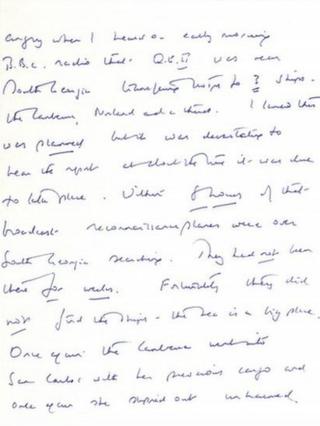 angry when I heard on early morning
B.B.C. radio that Q.E.II was near
South Georgia transferring troops to 3 ships -
the Canberra, Norland and a third. I knew this
was planned but it was devastating to
hear the report at about the time it was due
to take place. Within 8 hours of that
broadcast reconnaissance planes were over
South Georgia searching. They had not been
there for weeks. Fortunately they did
not find the ships - the sea is a big place.
Once again the Canberra went into
San Carlos with her precious cargo and
once again she slipped out unharmed.